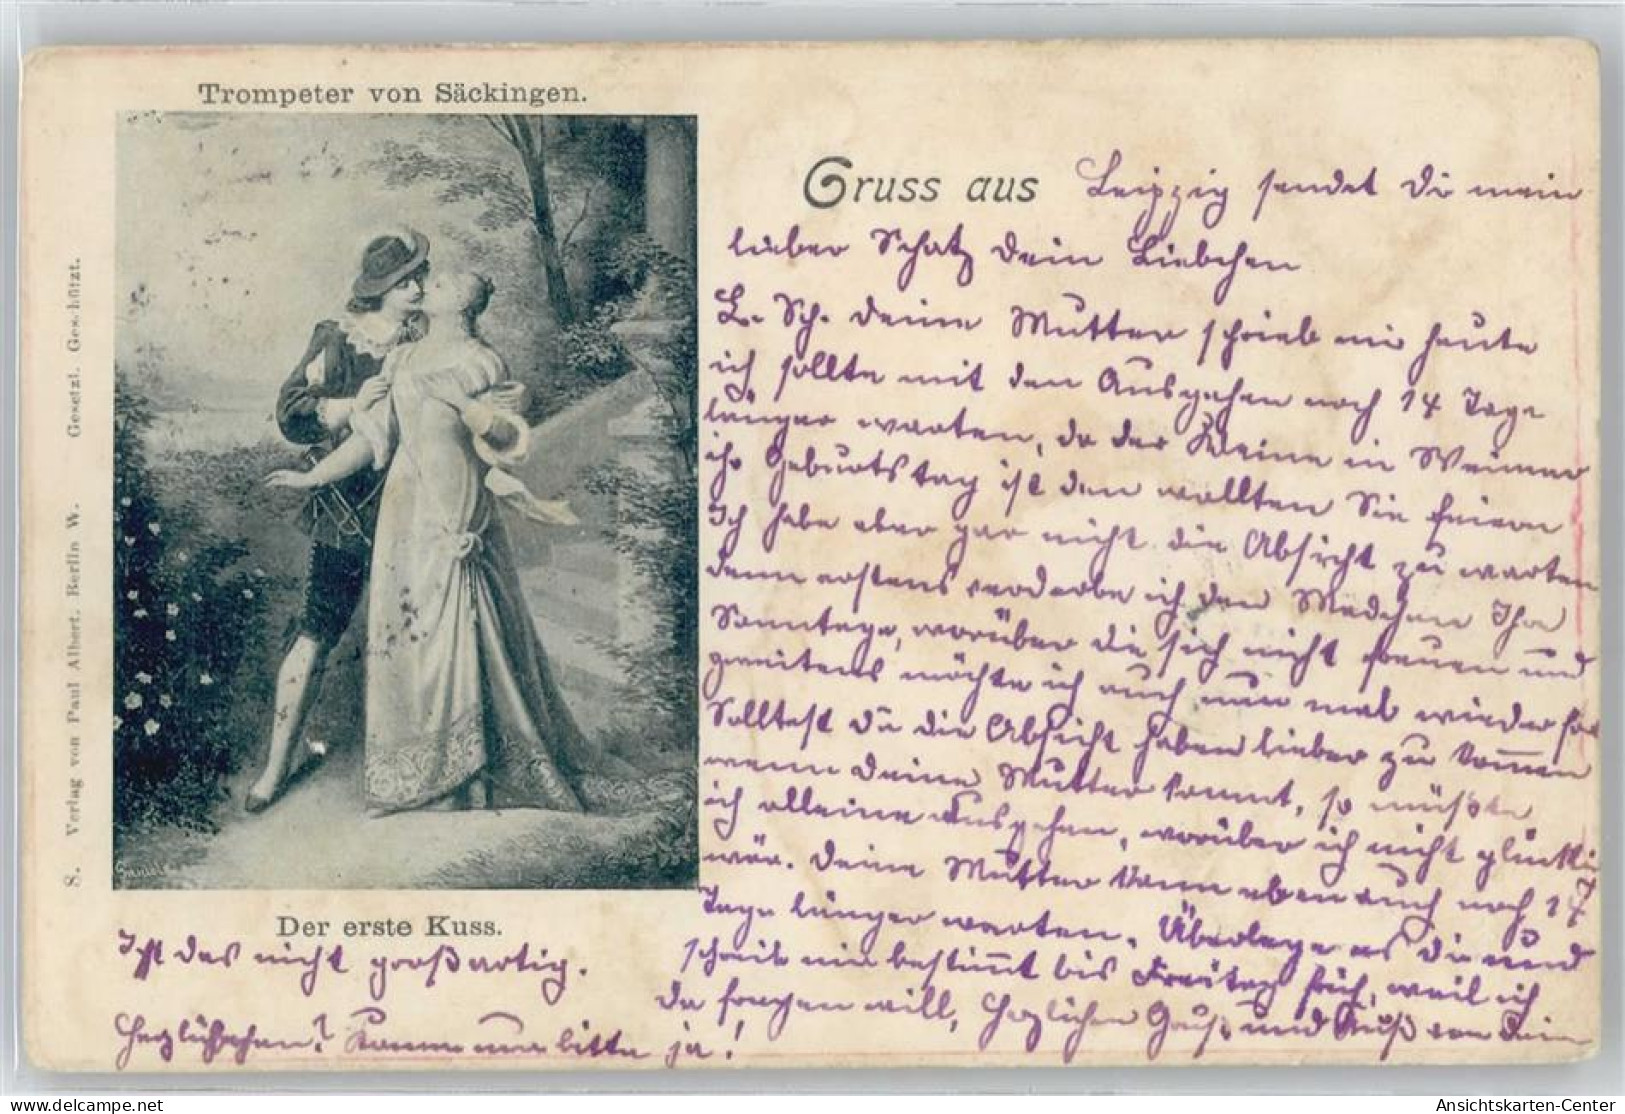 Trompeter von Säckingen.
Gruss aus Leipzig sendet Di mein
lieber Schatz Dein Liebchen
L. Sch. Deine Mutter schrieb mir heute
ich sollte mit den Ausgehen noch 14 Tage
länger warten, da der Kleine in Weimar
ihr Geburtstag ist den wollten Sie feiern
Ich habe aber gar nicht die Absicht zu warten
denn erstens verderbe ich den Mädchen Ihre
Sonntage, worüber die sich nicht freuen und
zweitens möchte ich auch nun mal wieder
Solltest du die Absicht haben lieber zu kommen
wenn Deine Mutter kommt, so müßte
ich alleine Ausgehen, worüber ich nicht glücklich
wär. Deine Mutter kann eben auch noch 14
Tage länger warten. Überlege es dir und
schreib mir bestimmt bis Freitag früh, weil ich
da fragen will, Herzlichen Gruß und Kuß von Dein
Der erste Kuss.
Ist das nicht großartig.
Herzliebchen? Komme nur bitte ja!
S. Verlag von Paul Albert. Berlin W. Gesetzl. Geschützt.
Ansichtskarten-Center
www.delcampe.net